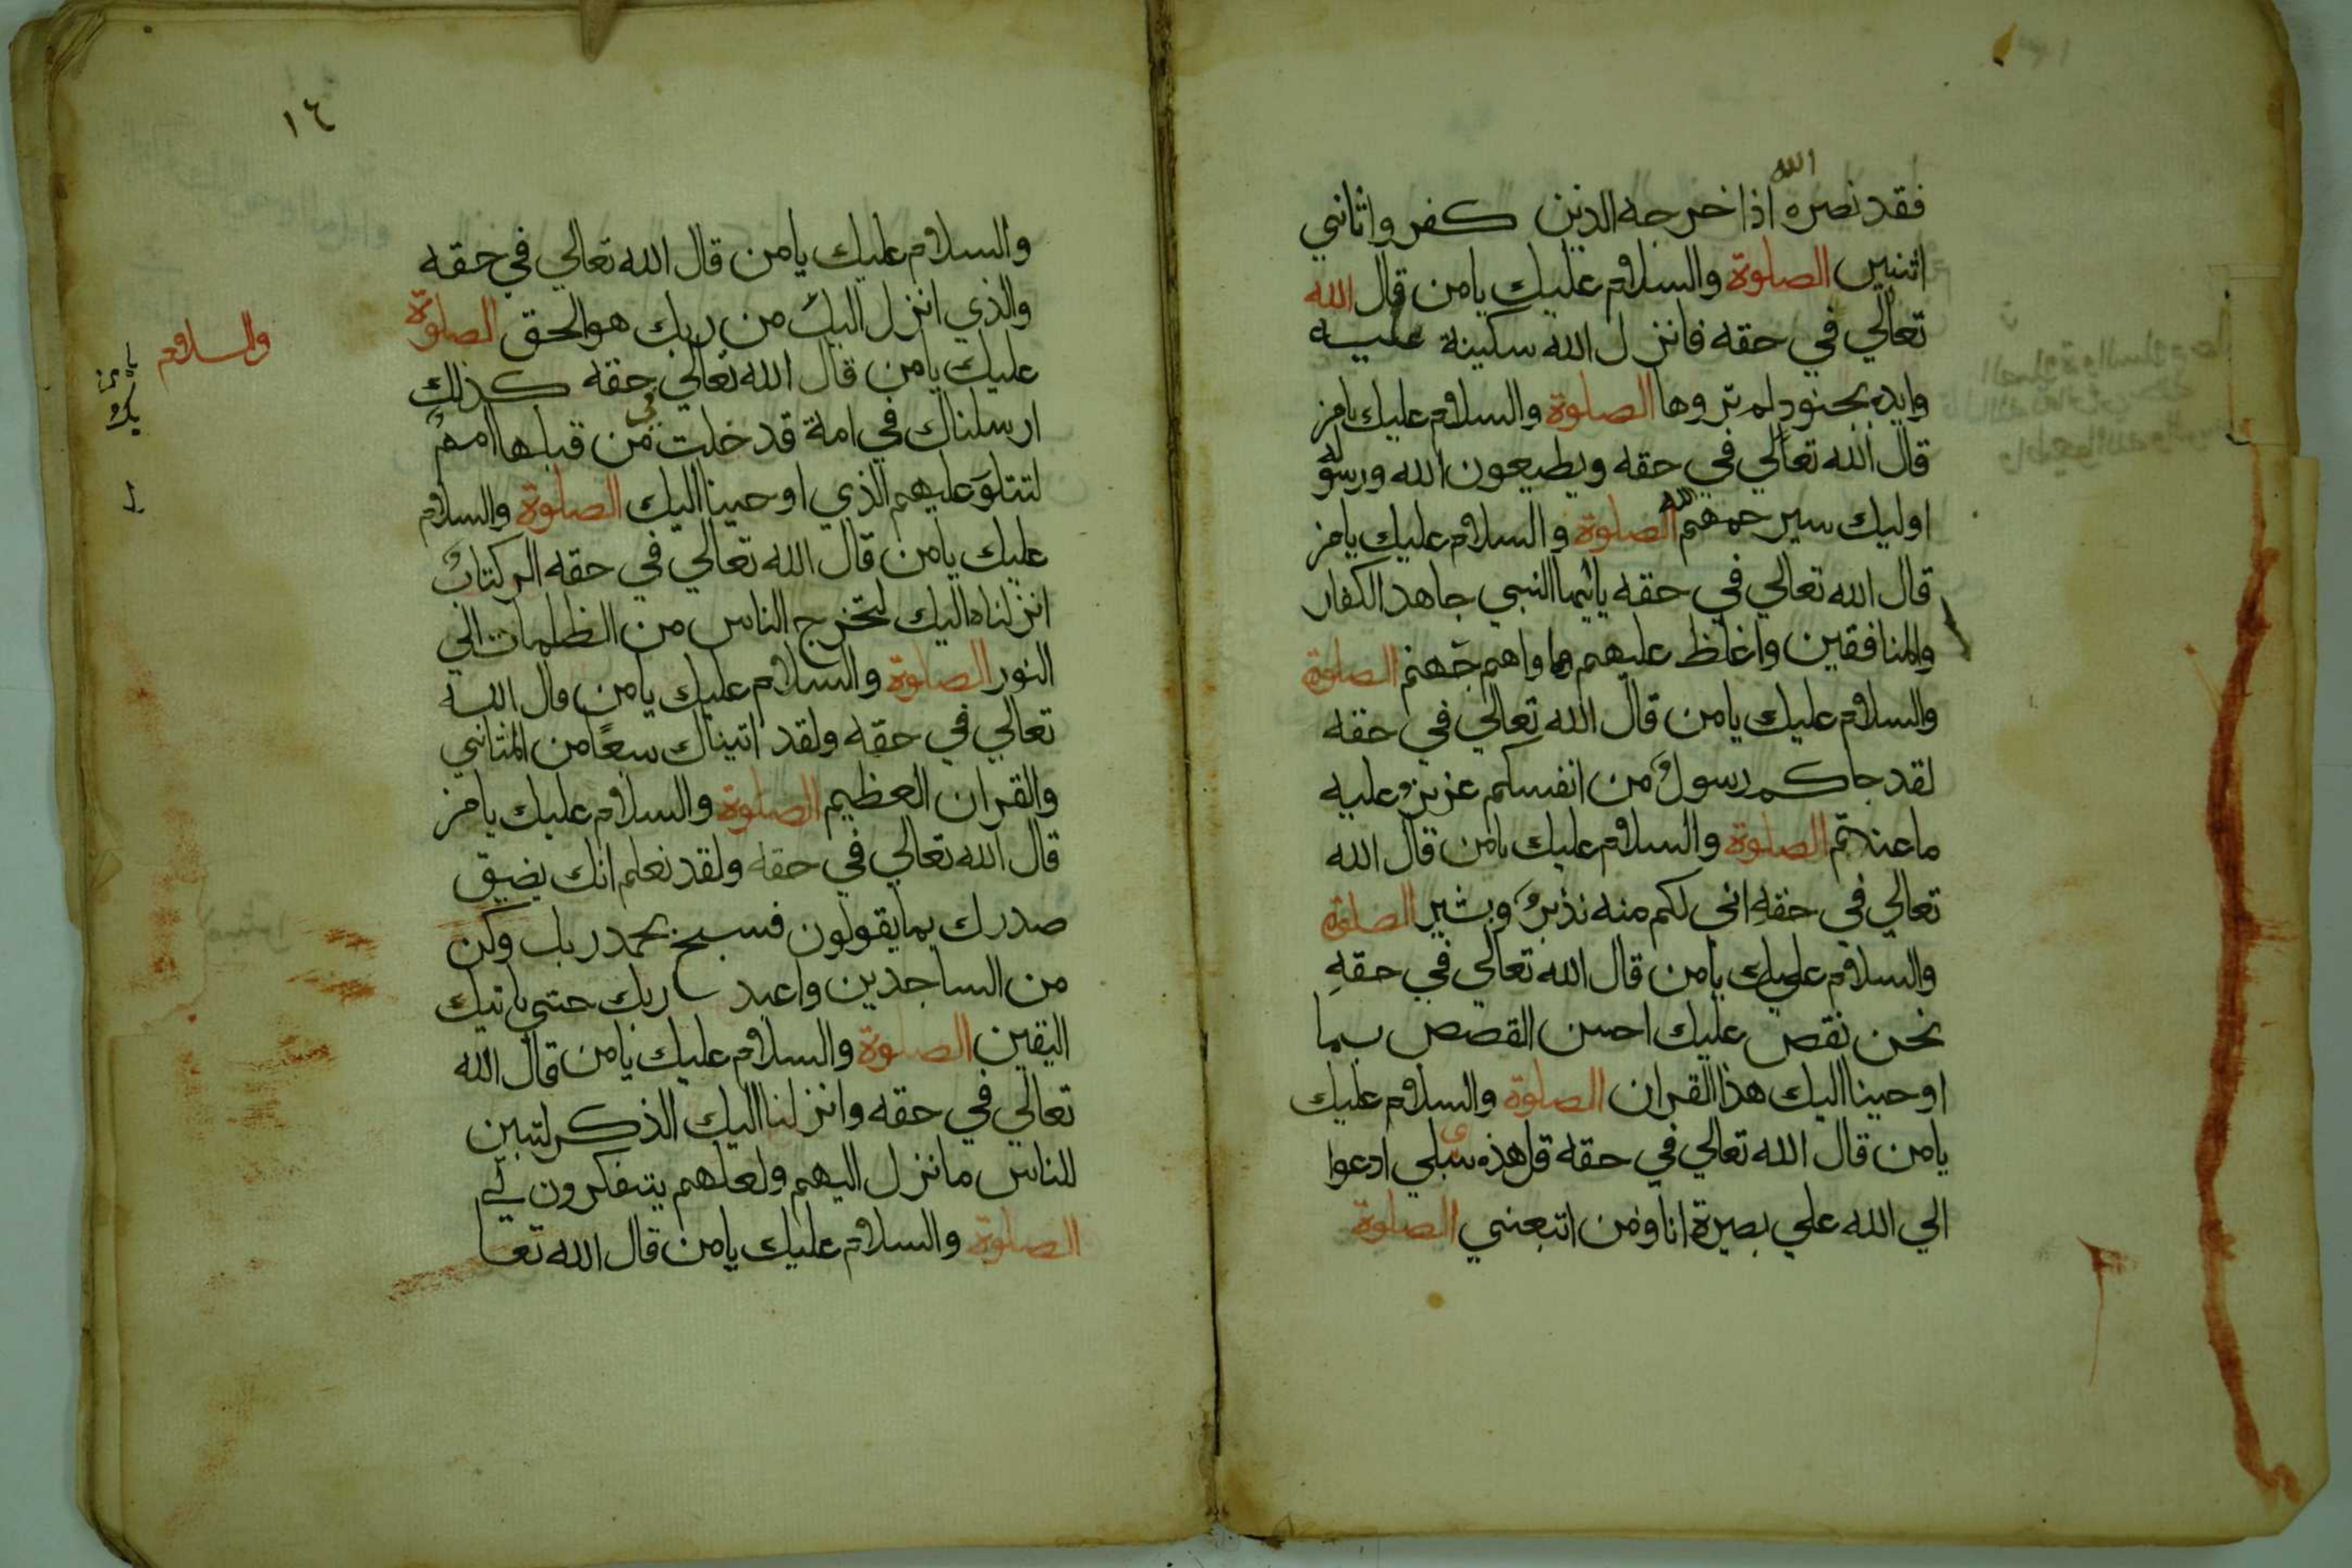 فقد نصره الله اذا خرجه الذين كفروا ثاني
اثنين الصلوة والسلام عليك يامن قال الله
تعالي في حقه فانزل الله سكينة عليه
وايده بجنود لم تروها الصلوة والسلام عليك يامن
قال الله تعالي في حقه ويطيعون الله ورسوله
اوليك سيرحمهم الله الصلوة والسلام عليك يامن
قال الله تعالي في حقه يا يها النبي جاهد الكفار
والمنافقين واغلظ عليهم وماواهم جهنم الصلوة
والسلام عليك يامن قال الله تعالي في حقه
لقد جاكم رسولٌ من انفسكم عزيزٌ عليه
ماعندتم الصلوة والسلام عليك يامن قال الله
تعالي في حقه انى لكم منه نذيرٌ وبشير الصلوة
والسلام عليك يامن قال الله تعالي في حقهِ
نحن نقص عليك احسن القصص بما
اوحينا اليك هذا القران الصلوة والسلام عليك
يامن قال الله تعالي في حقه قل هذه سبيلي ادعوا
الي الله علي بصيرة انا ومن اتبعني الصلوة
١٤
والسلام عليك يامن قال الله تعالي في حقه
والذي انزل اليك من ربك هو الحق الصلوة
والسلام
عليك يامن قال الله تعالي في حقه كذلك
ارسلناك في امة قد خلت من قبلها اممٌ
لتتلوَ عليهم الذي اوحينا اليك الصلوة والسلام
عليك يامن قال الله تعالي في حقه الر كتابٌ
انزلناه اليك لتخرج الناس من الظلمات الي
النور الصلوة والسلام عليك يامن قال الله
تعالي في حقه ولقد اتيناك سبعًا من المثاني
والقران العظيم الصلوة والسلام عليك يامن
قال الله تعالي في حقه ولقد نعلم انك يضيق
صدرك بما يقولون فسبح بحمد ربك وكن
من الساجدين واعبد ربك حتى ياتيك
اليقين الصلوة والسلام عليك يامن قال الله
تعالي في حقه وانزلنا اليك الذكر لتبين
للناس ما نزل اليهم ولعلهم يتفكرون
الصلوة والسلام عليك يامن قال الله تعا